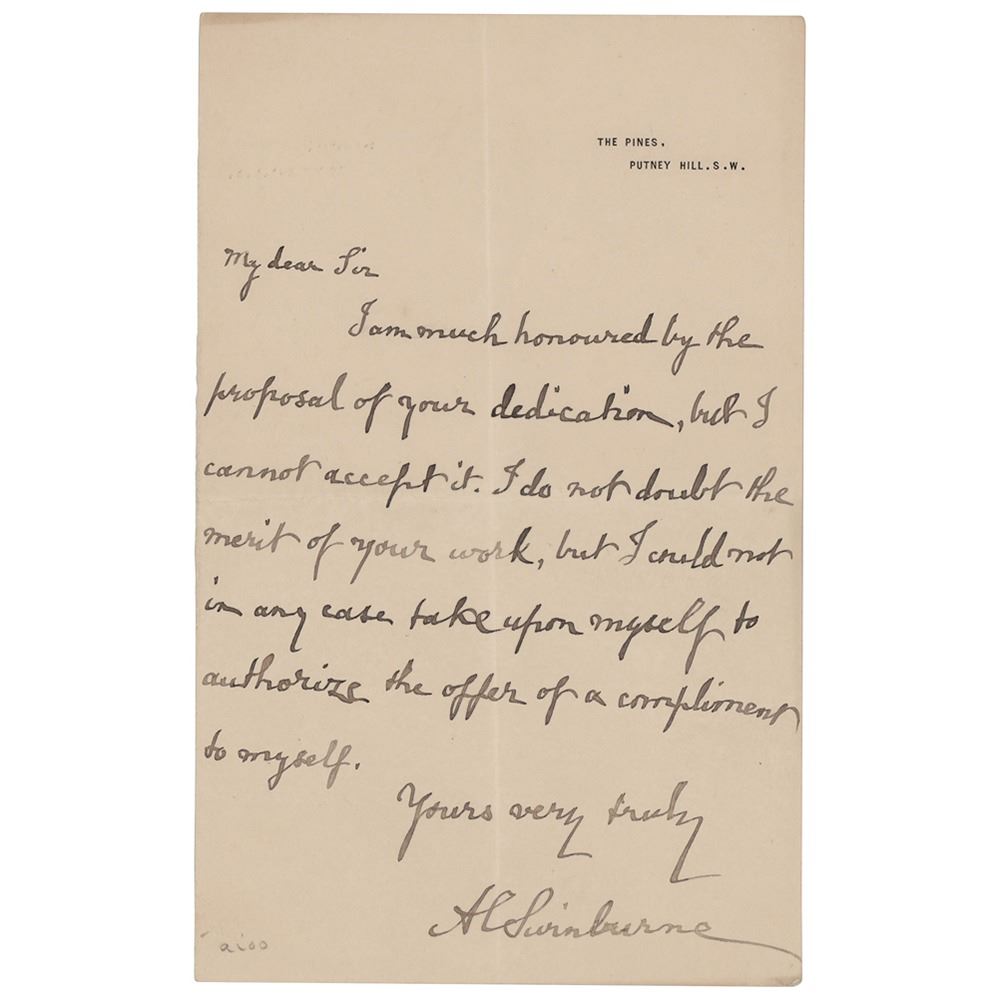 THE PINES,
PUTNEY HILL.S.W.
My dear Sir
I am much honoured by the
proposal of your dedication, but I
cannot accept it. I do not doubt the
merit of your work, but I could not
in any case take upon myself to
authorize the offer of a compliment
to myself.
Yours very truly
ACSwinburne